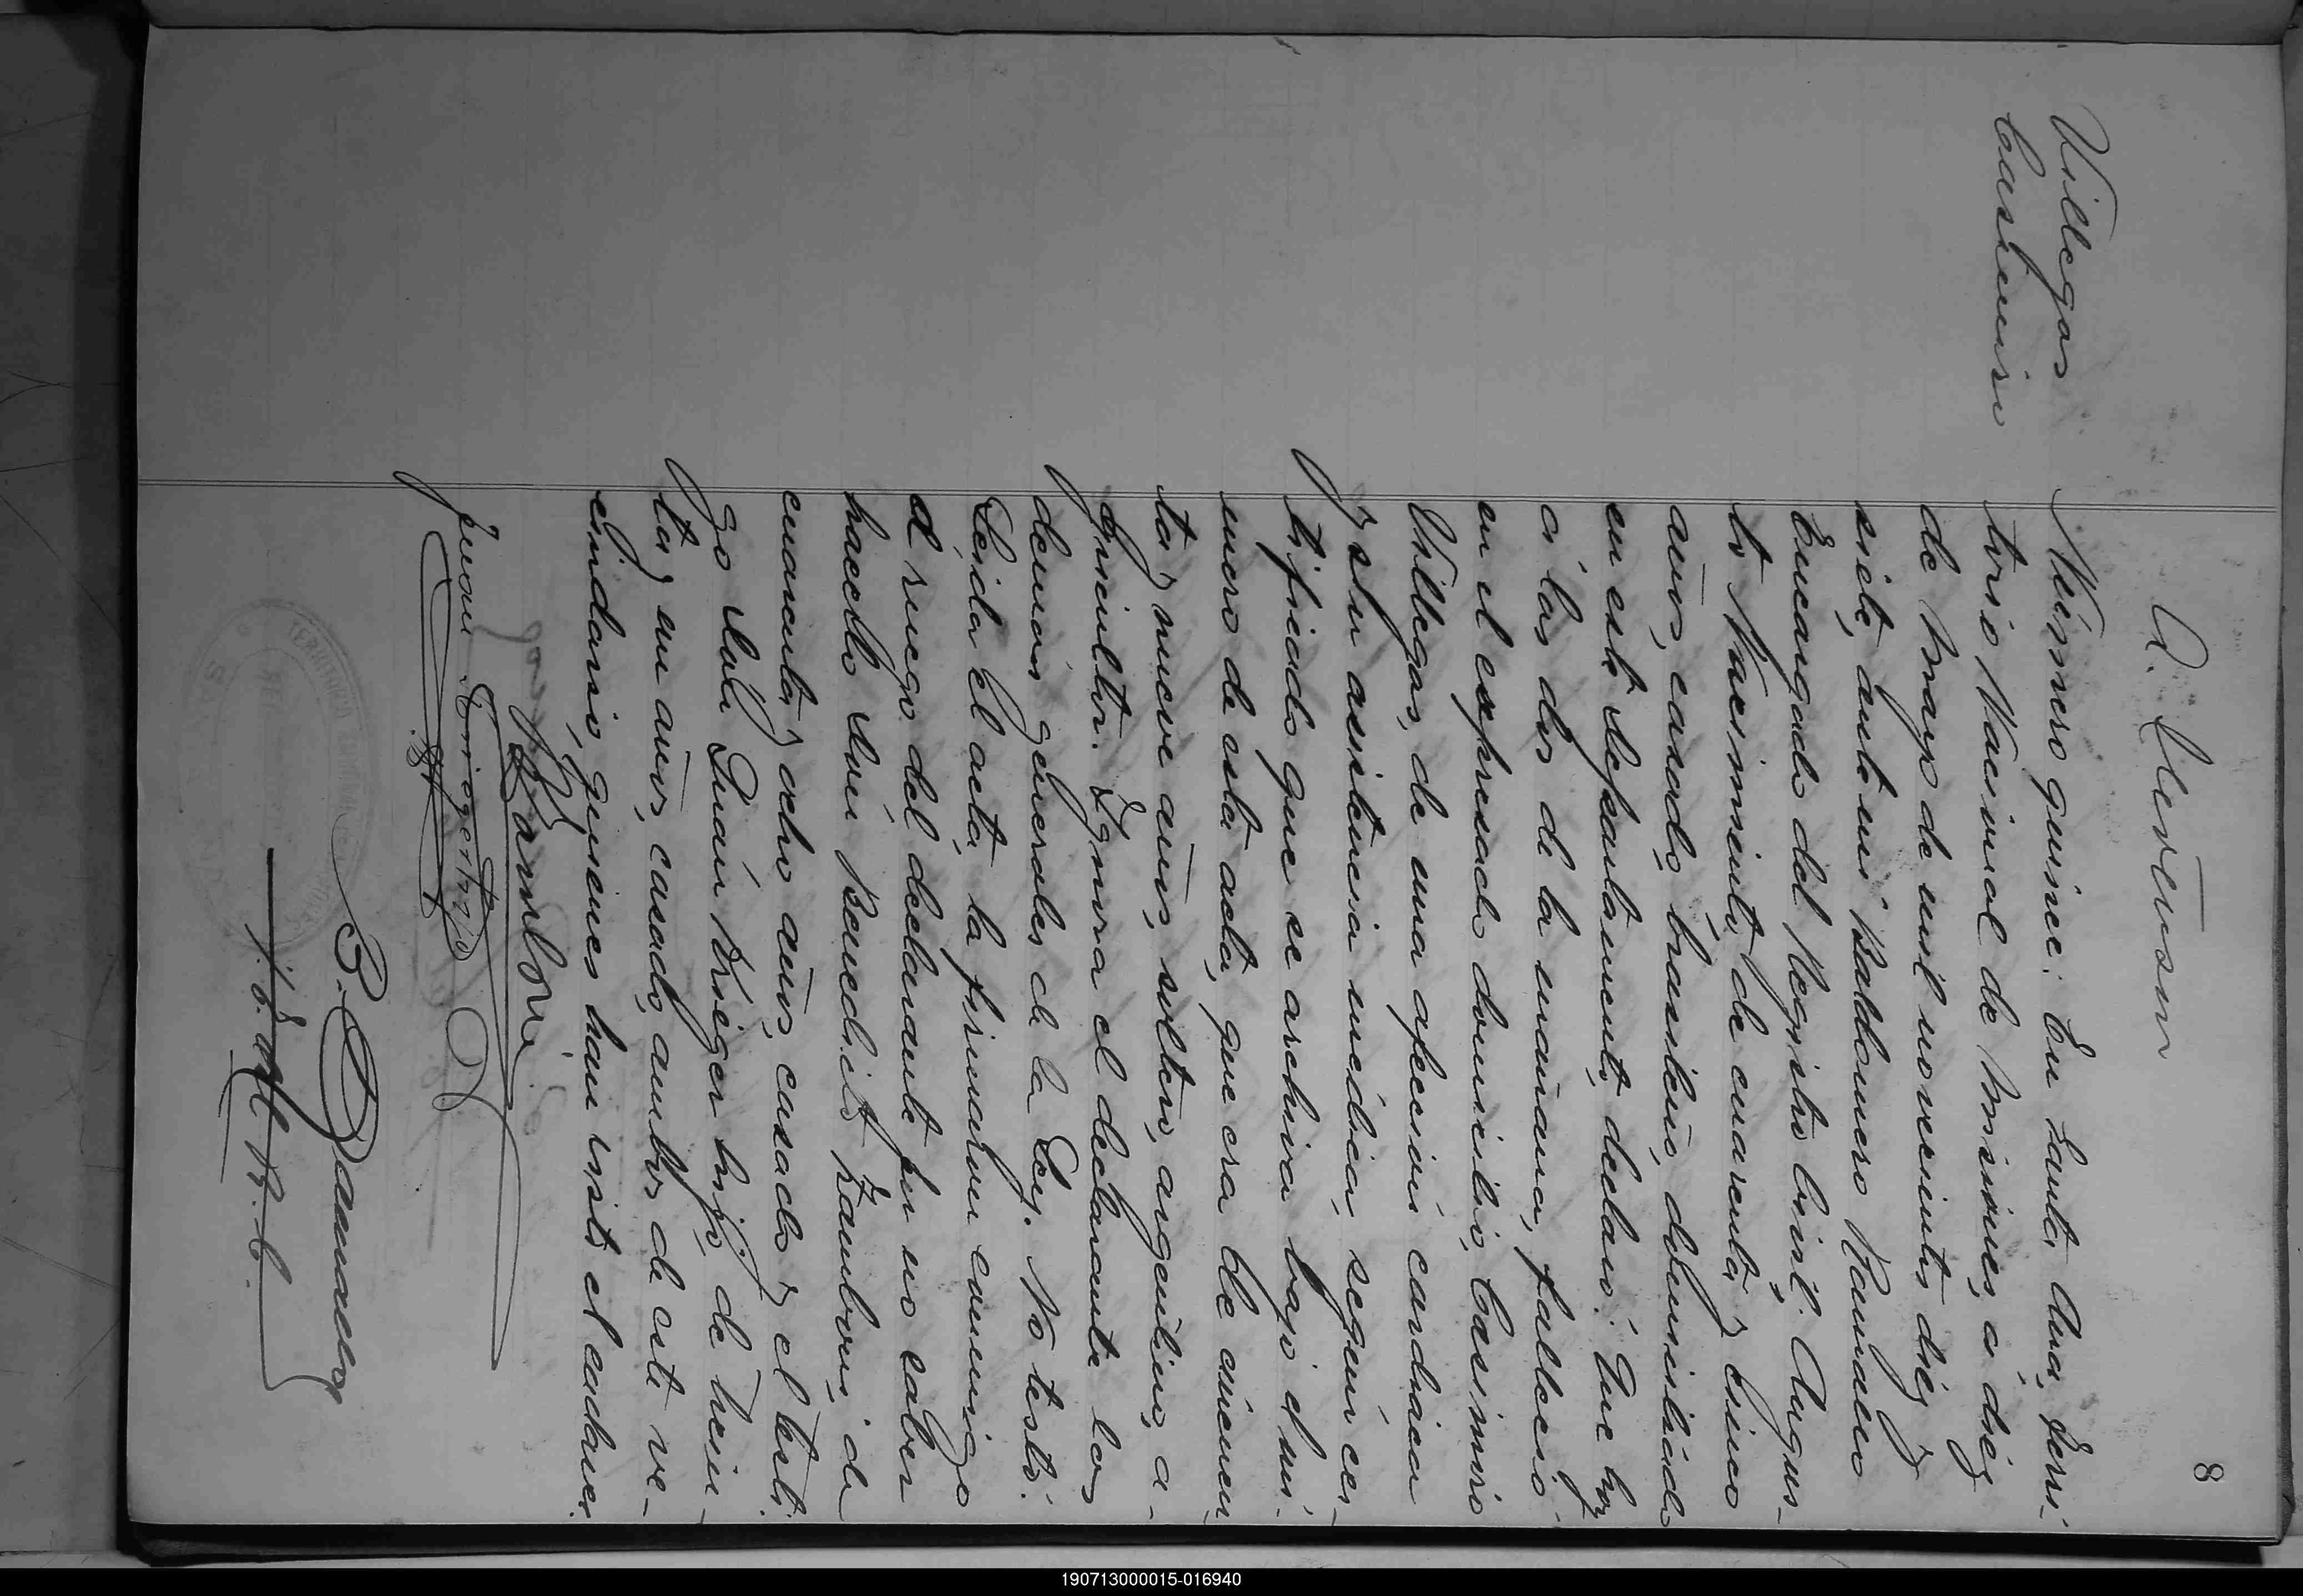 8
A. Clevenson
Villegas
Casimiro
Número quince: En Santa Ana, Terri-
torio Nacional de Misiones, a diez
de Mayo de mil novecientos diez y
siete, ante mi Baldomero
Encargado del Registro Civil; Augus-
to Nacimiento, de cuarenta y cinco
años, casado, brasileño, domiciliado
en este departamento, declaró: Que hoy
a las dos de la mañana, falleció
en el expresado domicilio, Casimiro
Villegas, de una afección cardiaca
y sin asistencia médica, según cer-
tificado que se archiva bajo el nú-
mero de esta acta, que era de cincuen-
ta y nueve años, soltero, argentino, a-
gricultor. Ignora el declarante las
demás generales de la Ley. No testó.
Leida el acta, la firmaron conmigo
á ruego del declarante por no saber
hacerlo Don Benedicto Zamboni, de
cuarenta y ocho años, casado y el testi-
go Don Juán Krieger hijo, de trein-
ta y un años, casado, ambos de este ve-
cindario, quienes han visto el cadaver.
B. Zamboni
Juan Krieger hijo
TERRITORIO
190713000015-016940